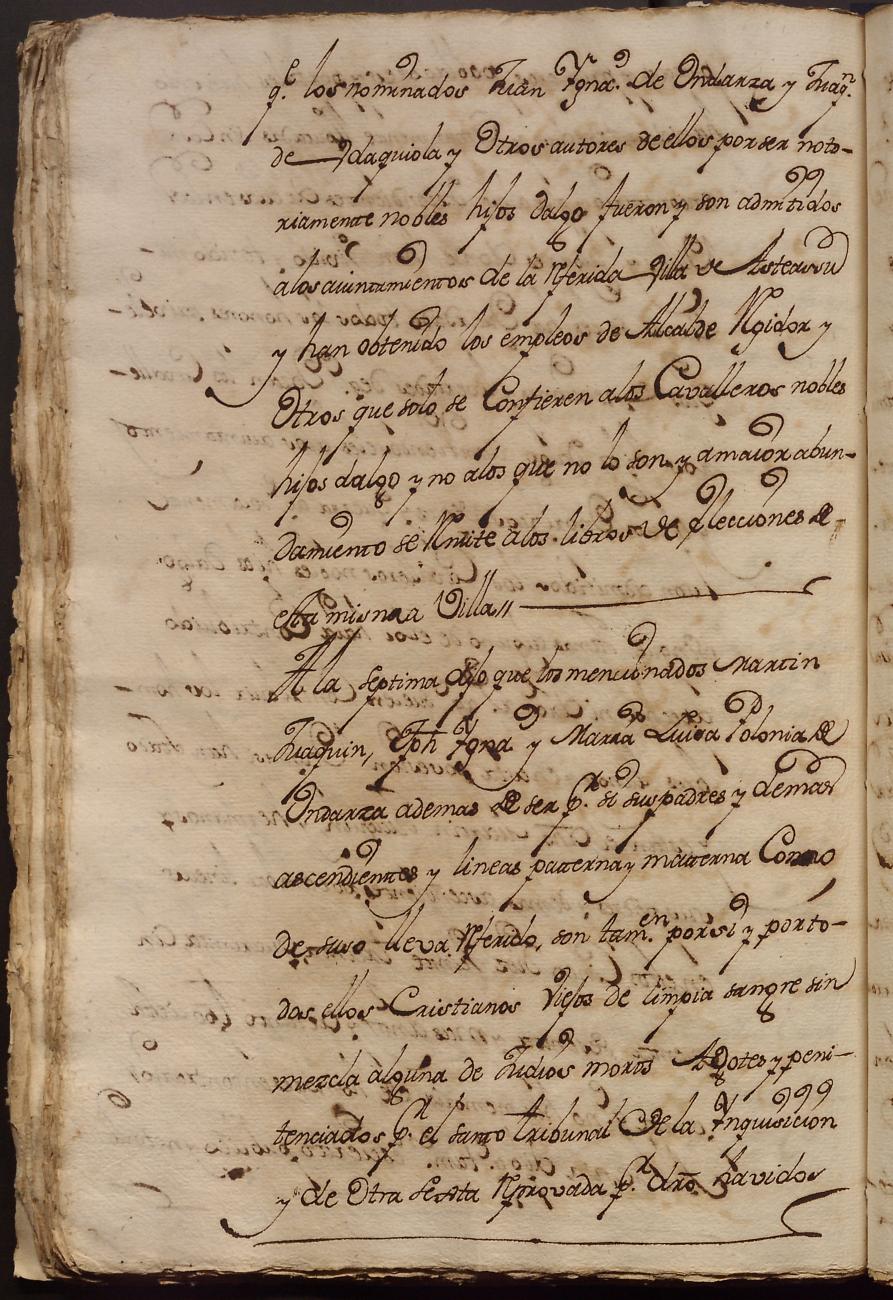 q.e los nominados Juan Ygna.o de Undarza y Juaq.n
de Ydaquiola y Otros autores de ellos por ser noto-
riamente nobles hijos dalgo fueron y son admitidos
alos aiuntamientos de la Rferida Villa de Asteassu
y han obtenido los empleos de Alcalde Rgidor y
Otros que solo se Confieren alos Cavalleros nobles
hijos dalgo y no alos que no lo son y amaior abun-
damiento se Rmite alos libros de Elecciones de
esta misma Villa //
A la septima dijo que los mencionados Martin
Juaquin, Jph Ygna.o y Maria Luisa Polonia de
Undarza ademas de ser p.r si sus padres y demas
ascendientes y lineas patterna y matterna Como
de suso lleva Rferido, son tam.en por si y por to-
dos ellos Cristianos Viejos de limpia sangre sin
mezcla alguna de Judios moros Agotes y peni-
tenciados p.r el santo tribunal de la Ynquisicion
y de Otra Secta Rprovada p.r dro. havidos